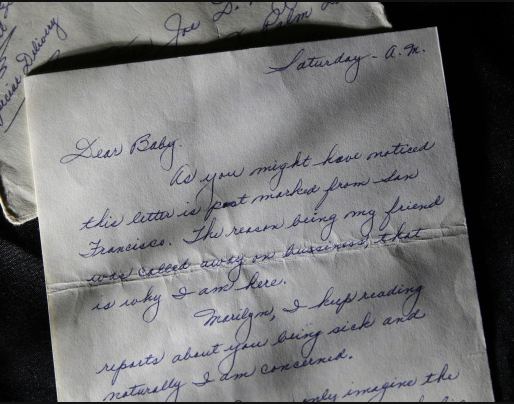 Joe D.
Palm
Special Delivery
Saturday - A.M.
Dear Baby.
As you might have noticed
this letter is post marked from San
Francisco. The reason being my friend
was called away on bussiness, that
is why I am here.
Marilyn, I keep reading
reports about you being sick and
naturally I am concerned.
only imagine the